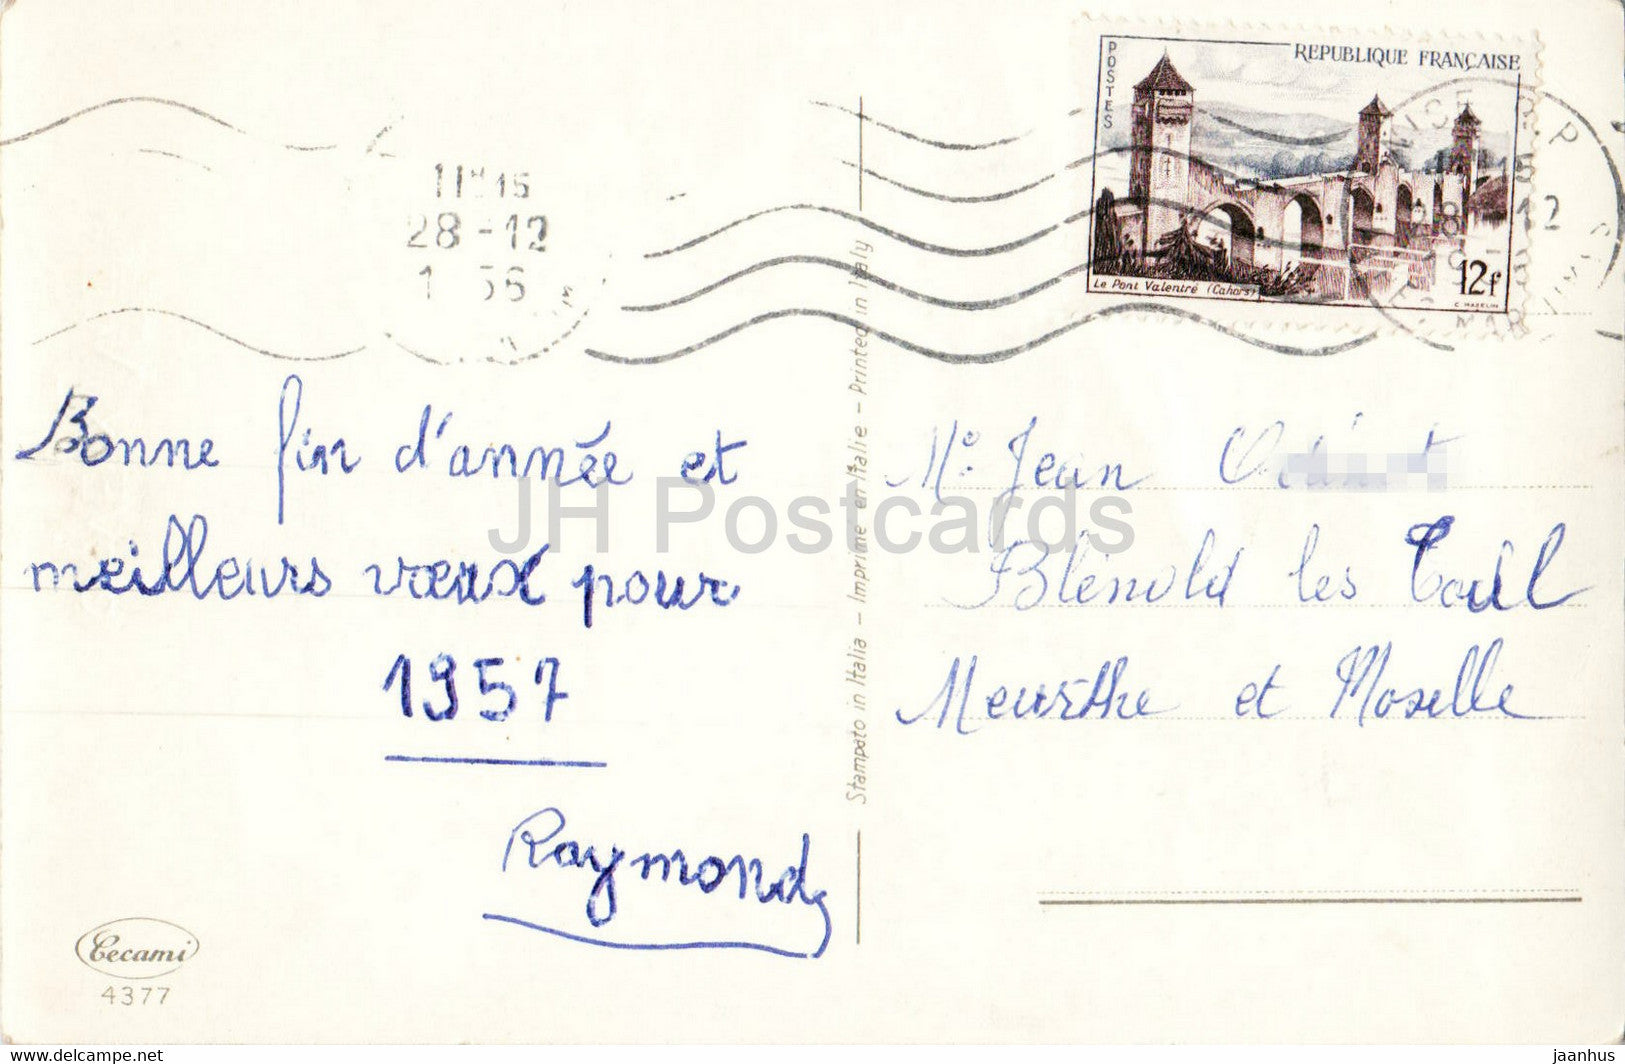 REPUBLIQUE FRANÇAISE
POSTES
Le Pont Valentré (Cahors)
12f
11H15
28-12
28 - 12
Bonne fin d'année et
meilleurs vœux pour
1957
Raymond
Cecami
4377
Stampato in Italia - Imprimé en Italie - Printed in Italy
Mr. Jean
Blénold les Toul
Meurthe et Moselle
JH Postcards
www.hippostcard.com
jaanhus